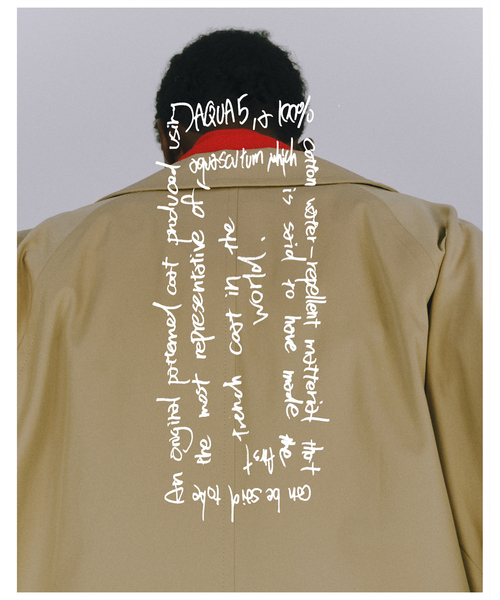 An original patterned coat produced using
AQUA5, a 100%
cotton water-repellent matterial that
can be said to be
the most representative of
aquascutum which
is said to have made the
first
trench coat in the
world.